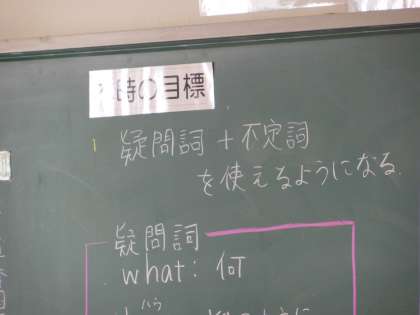 時の目標
疑問詞+不定詞
を使えるようになる.
疑問詞
what: 何
ハウ